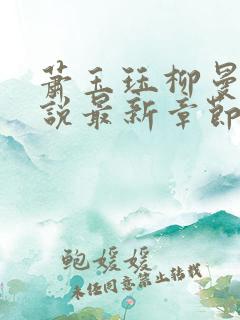 萧玉珏柳曼
说最新章节
鲍媛媛
未经同意禁止转载